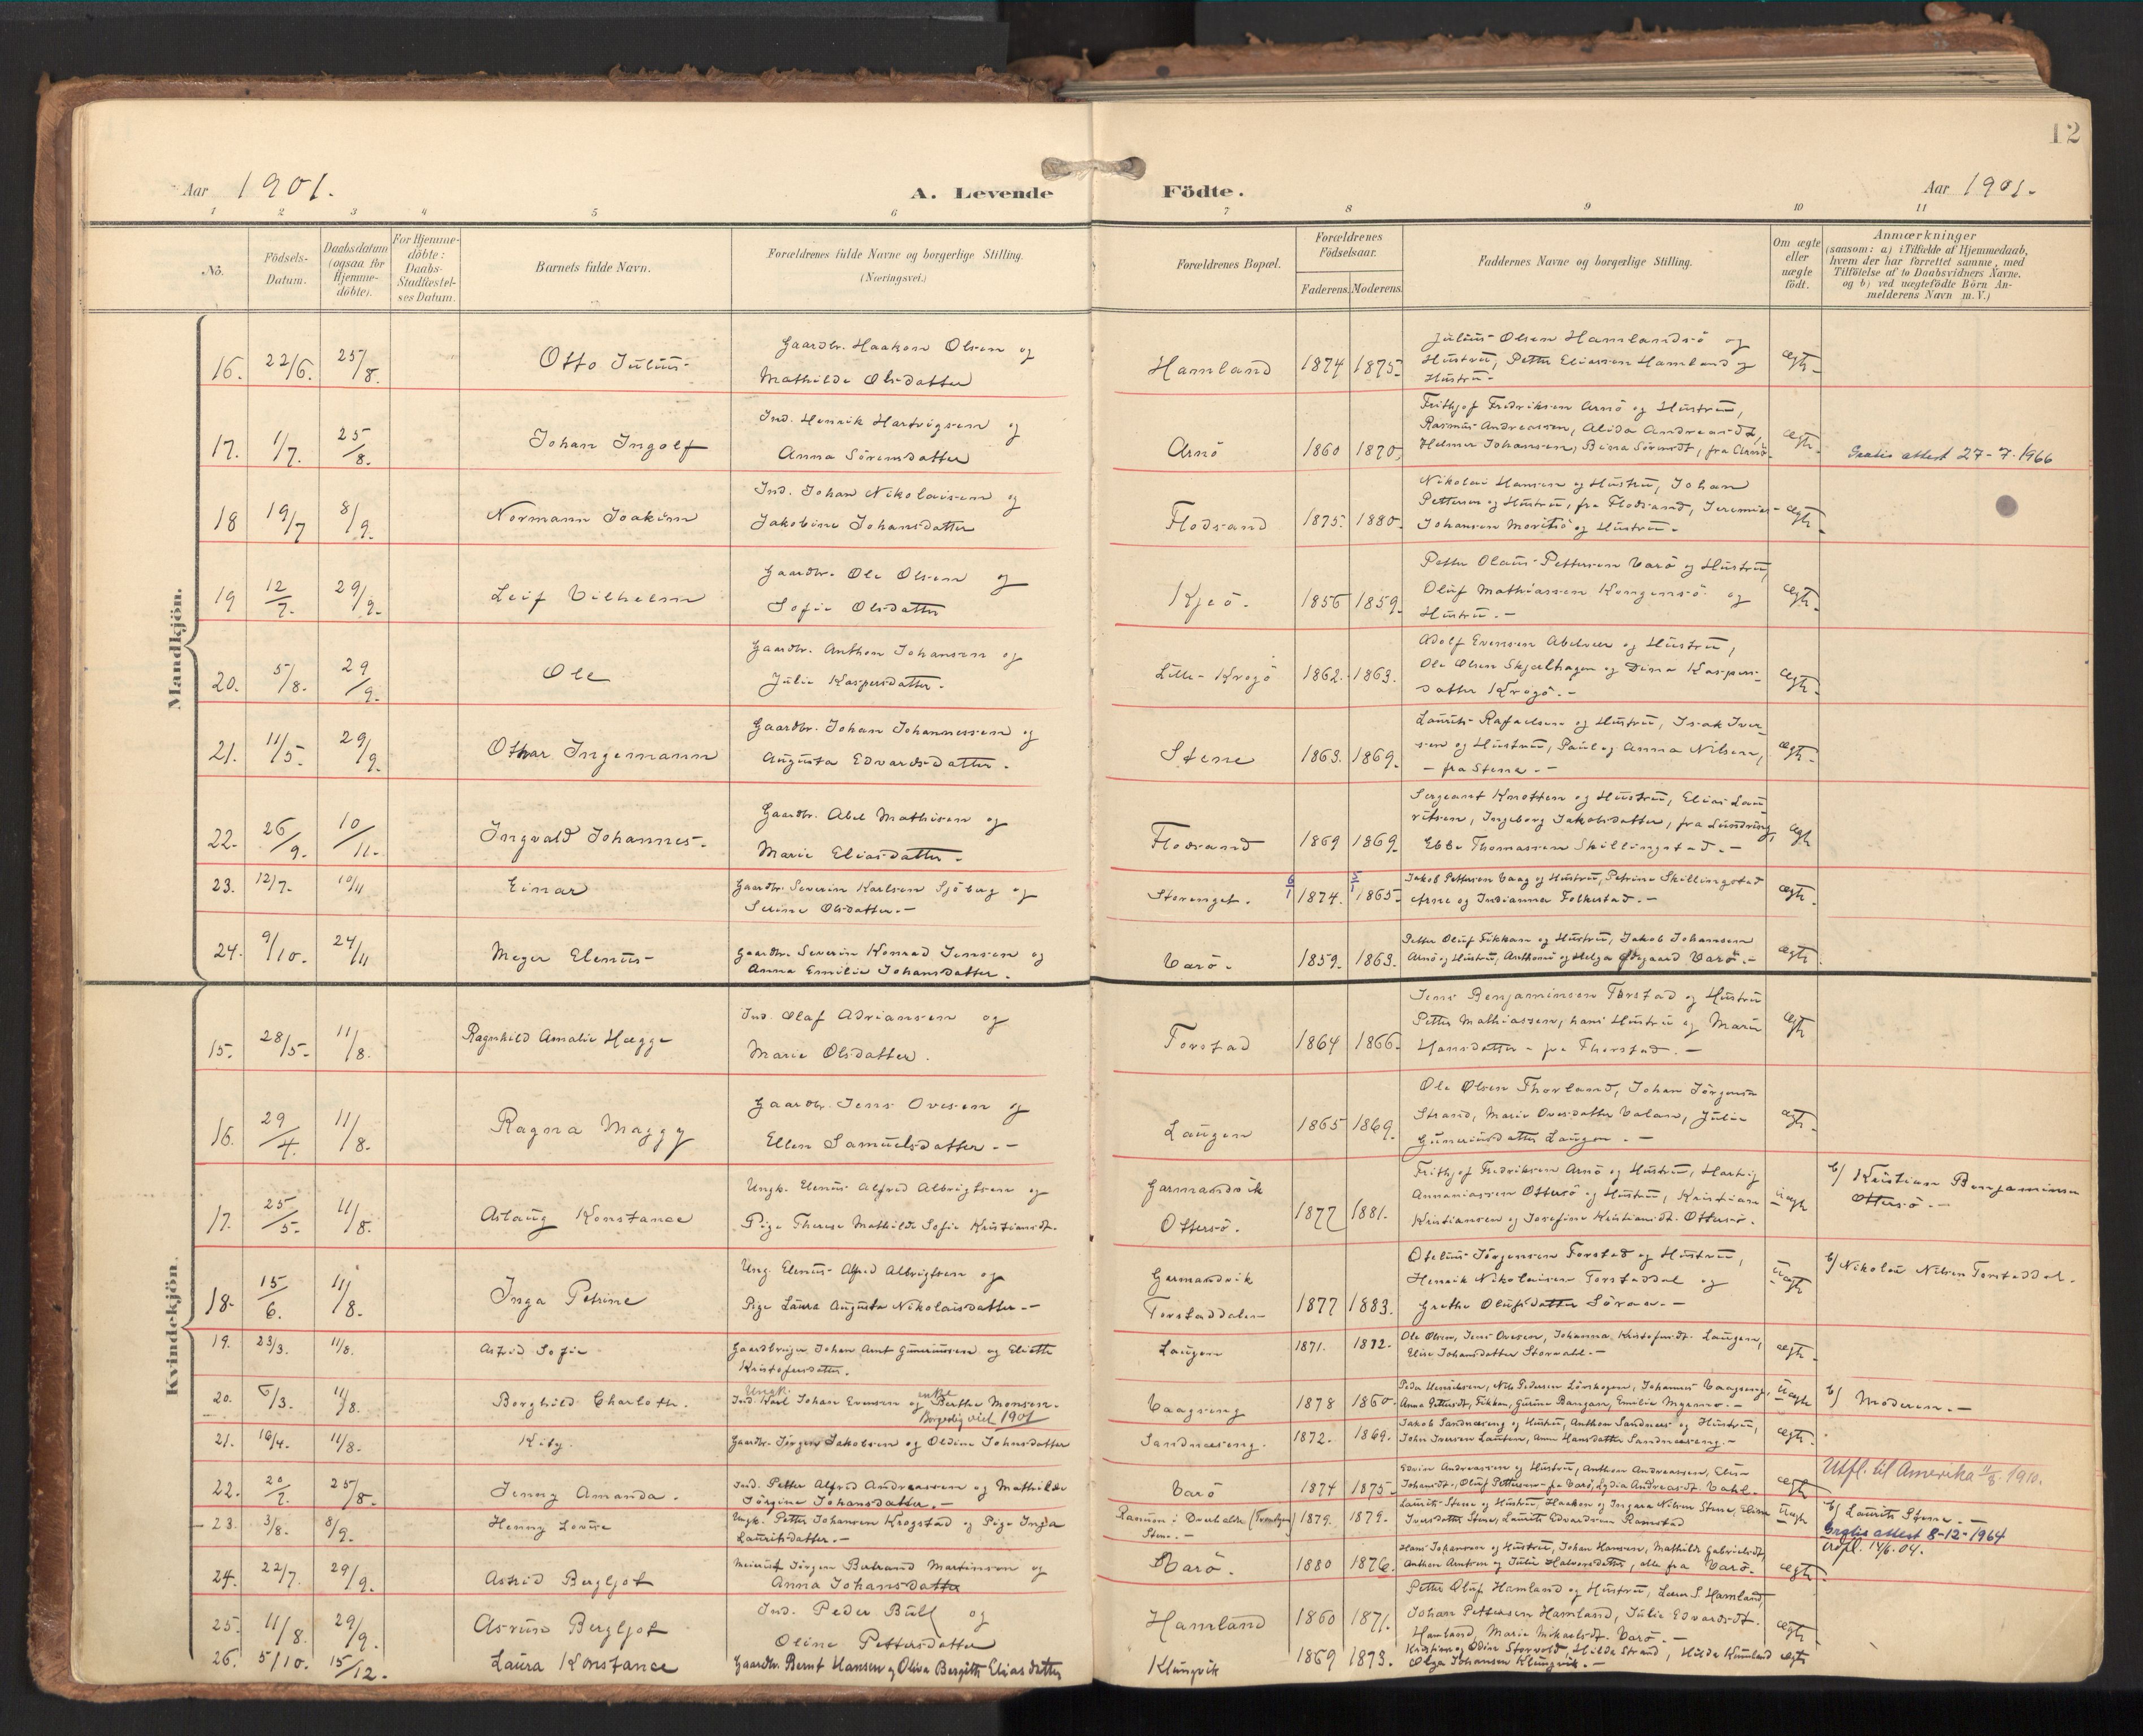 12
Aar 1901.
A. Levende Födte.
Aar 1901.
1 2 3 4 5 6 7 8 9 10 11
No.
Födsels-Datum.
Daabsdatum (ogsaa for Hjemme-döbte).
For Hjemme-döbte: Daabs-Stadfæstel-ses Datum.
Barnets fulde Navn.
Forældrenes fulde Navne og borgerlige Stilling.
(Næringsvei.)
Forældrenes Bopæl.
Forældrenes Födselsaar.
Faderens. Moderens.
Faddernes Navne og borgerlige Stilling.
Om ægte eller uægte födt.
Anmærkninger
(saasom: a) i Tilfælde af Hjemmedaab, hvem der har forrettet samme, med Tilföielse af to Daabsvidners Navne, og b) ved uægtefödte Börn An-melderens Navn m. V.)
Mandkjön.
16. 22/6. 25/8. Otto Julius Gaardbr. Haakon Olsen og
Mathilde Olsdatter
Hamland 1874 1875. Julius Olsen Hamlandsö og
Hustru, Petter Eliassen Hamland og
Hustru- ægte
17. 1/7. 25/8. Johan Ingolf Ind. Henrik Hartvigsen og
Anna Sörensdatter
Arnö 1860 1870. Frithjof Fredriksen Arnö og Hustru,
Rasmus Andreassen, Alida Andreasdt,
Helmer Johansen, Bina Sörensdt, fra Arnö. ægte Gratis attest 27-7-1966
18 19/7 8/9. Normann Joakim Ind. Johan Nikolaisen og
Jakobine Johansdatter
Flodsand 1875. 1880. Nikolai Hansen og Hustru, Johan
Pettersen og Hustru, fra Flodsand, Jeremias
Johansen og Hustru. ægte
19 12/7. 29/9. Leif Vilhelm Gaardbr. Ole Olsen og
Sofie Olsdatter
Kjeö. 1856 1859. Petter Olaus Pettersen Varö og Hustru,
Oluf Mathiassen Kongensö og
Hustru.- ægte
20. 5/8. 29/9. Ole Gaardbr. Anton Johansen og
Julie Kaspersdatter.
Lille-Krogö 1862. 1863. Adolf Evensen Abelvær og Hustru,
Ole Olsen Skjælhagen og Dina Kaspers-
datter Krogö.- ægte
21. 11/5. 29/9. Othar Ingemann Gaardbr. Johan Johannessen og
Augusta Edvardsdatter.
Stene 1863. 1869. Laurits Rafaelsen og Hustru, Isak Iver-
sen og Hustru, Paul og Anna Nilsen,
- fra Stene.- ægte
22. 26/9. 10/11. Ingvald Johannes. Gaardbr. Abel Mathisen og
Marie Eliasdatter.
Flodsand 1869 1869. Sergeant Knotten og Hustru, Elias Lau
ritsen, Ingeborg Jakobsdatter, fra Lundring,
Ebbe Thomassen Skillingstad.- ægte
23. 12/7. 10/11 Einar Gaardbr. Severin Karlsen Sjöberg og
Serine Olsdatter.-
Storenget. 1874. 1865. Jakob Pettersen Vaag og Hustru, Petrine Skillingstad
Arne og Indianna Folkestad.- ægte.
24. 9/10. 24/11 Meyer Elenus Gaardbr. Severin Konrad Jensen og
Anna Emilie Johansdatter.
Varö. 1859. 1863. Petter Oluf Fikkan og Hustru, Jakob Johansen
Arnö og Hustru, Anthon og Helga Ödegaard Varö.- ægte
Kvindekjön.
15. 28/5. 11/8. Ragnhild Amalie Hægge Ind. Olaf Adriansen og
Marie Olsdatter.
Forstad 1864 1866. Jens Benjaminsen Forstad og Hustru
Petter Mathiassen, hans Hustru og Marie
Hansdatter - fra Thorstad.- ægte
16. 29/4. 11/8. Ragna Maggy Gaardbr. Jens Ovesen og
Ellen Samuelsdatter.-
Laugen 1865 1869. Ole Olsen Thorland, Johan Jörgensen
Strand, Marie Ovesdatter Valan, Julie
Guneriusdatter Laugen.- ægte
17. 25/5. 11/8. Aslaug Konstance Ungk. Elenus Alfred Albrigtsen og
Pige Therese Mathilde Sofie Kristiansdt.
Garmandsvik
Ottersö. 1877 1881. Frithjof Fredriksen Arnö og Hustru, Hartvig
Annaniassen Ottersö og Hustru, Kristian
Kristiansen og Josefine Kristiansdt. Ottersö. uægte b/ Kristian Benjaminsen
Ottersö.-
18. 15/6. 11/8. Inga Petrine Ung. Elenus Alfred Albrigtsen og
Pige Laura Augusta Nikolaisdatter.-
Garmandvik
Forstaddalen 1877 1883. Otelius Jörgensen Forstad og Hustru,
Henrik Nikolaisen Forstaddal og
Grethe Olufsdatter Söraa.- uægte b/ Nikolai Nilsen Forstaddal.
19. 23/3. 11/8. Astrid Sofie Gaardbruger Johan Arnt Guneriussen og Elisetta
Kristofersdatter.
Laugen 1871. 1872. Ole Olsen, Jens Ovesen, Johanna Kristofersdt. Laugen,
Elise Johansdatter Storvahl.- ægte.
20. 6/3. 11/8. Borghild Charlotte. Ungk. enke
Ind. Karl Johan Evensen og Berthe Monsen.
Borgerlig viet 1901
Vaagseng 1878 1860. Peder Henriksen, Nils Pedersen Lövskogen, Johannes Vaagseng,
Anna Pettersdt, Fikkan, Gurine Bangan, Emilie Myrmo.- uægte b/ Moderen.-
21. 16/4. 11/8. Kity. Gaardbr. Jörgen Jakobsen og Oldine Johnsdatter
Sandnæseng. 1872. 1869. Jakob Sandnæseng og Hustru, Anthon Sandnæs og Hustru,
John Iversen Lauten, Anne Hansdatter Sandnæseng.- ægte.
22. 20/7. 25/8. Jenny Amanda. Ind. Petter Alfred Andreassen og Mathilde
Jörgine Johansdatter.-
Varö 1874 1875. Edvin Andreassen og Hustru, Anthon Andreassen, Elise
Johansdt., Oluf Pettersen- fra Varö, Lydia Andreasdt. Vahl.- ægte Utfl. til Amerika 11/8 1910.
- 23. 3/8. 8/9. Henny Lovise Ungk. Petter Johansen Krogstad og Pige Inga
Lauritsdatter.-
Ranum i Overhalla
Stene.- 1879. 1879. Laurits Stene og Hustru, Haakon og Ingara Nilsen Stene, Elisa
Iversdatter Stene, Laurits Edvardsen Ramstad uægte b/ Laurits Stene.-
Gratis attest 8-12-1964
utfl. 14/6. 04.
24. 22/7. 29/9. Astrid Bergljot Meierist Jörgen Bertrand Martinsen og
Anna Johansdatter
Varö. 1880 1876. Hans Johansen og Hustru, Johan Hansen, Mathilde Gabrielsdt,
Anthon Arntsen og Julie Halvorsdatter, alle fra Varö. ægte
25. 11/8. 29/9. Asrun Bergljot Ind. Peder Bull og
Oline Pettersdatter
Hamland 1860 1871. Petter Oluf Hamland og Hustru, Lars S. Hamland,
Johan Pettersen Hamland, Julie Edvardsdt.
Hamland, Marie Mikaelsdt. Varö.- ægte
26. 5/10. 15/12. Laura Konstance Gaardbr. Bernt Hansen og Oliva Bergitte Eliasdatter
Klungvik 1869 1873. Kristian og Odine Storvold, Hilda Strand, Hilda Kumlund
Olga Johansen Klungvik.- ægte